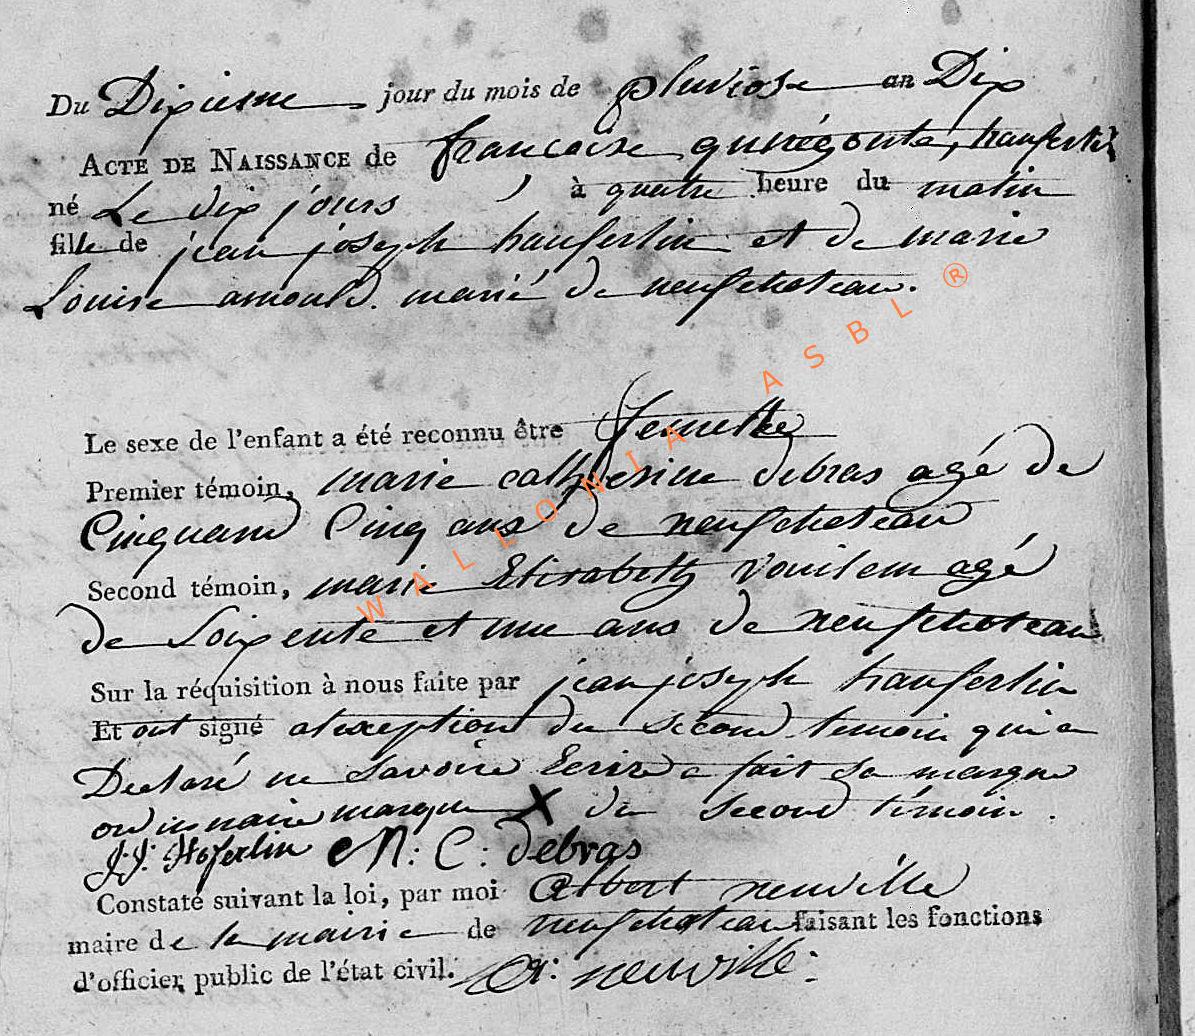 Du Dixieme jour du mois de pluviose an Dix
ACTE DE NAISSANCE de francoise gunégonte, haufertin
né Le dix jours, à quatre heure du matin
fille de jean joseph hauferlin et de marie
Louise arnould. marié de neufchateau.
Le sexe de l'enfant a été reconnu être femelle
Premier témoin, marie catherine debras agé de
Cinquand Cinq ans de neufchateau
Second témoin, marie Elisabeth Vouilem agé
de Soixente et une ans de neufchateau
Sur la réquisition à nous faite par jean joseph hauferlin
Et ont signé a lexeption du second temoin qui a
Declaré ne savoire Ecrire a fait sa marque
ordinnaire marque X du second témoin.
J: J: Hoferlin M: C: debras
Constaté suivant la loi, par moi Albert neuville
maire de la mairie de neufchateau faisant les fonctions
d'officier public de l'état civil. A: neuville:
WALLONIA ASBL ®